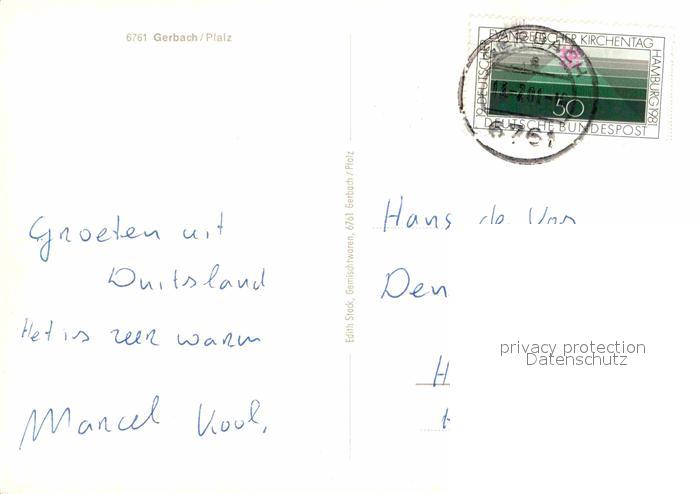 6761 Gerbach / Pfalz
Groeten uit
Duitsland
Het is zeer warm
Marcel Kool.
Edith Stock, Gemischtwaren, 6761 Gerbach / Pfalz
19. DEUTSCHER EVANGELISCHER KIRCHENTAG HAMBURG 1981
50
DEUTSCHE BUNDESPOST
GERBACH
6761
Hans de
Den
H
privacy protection
Datenschutz